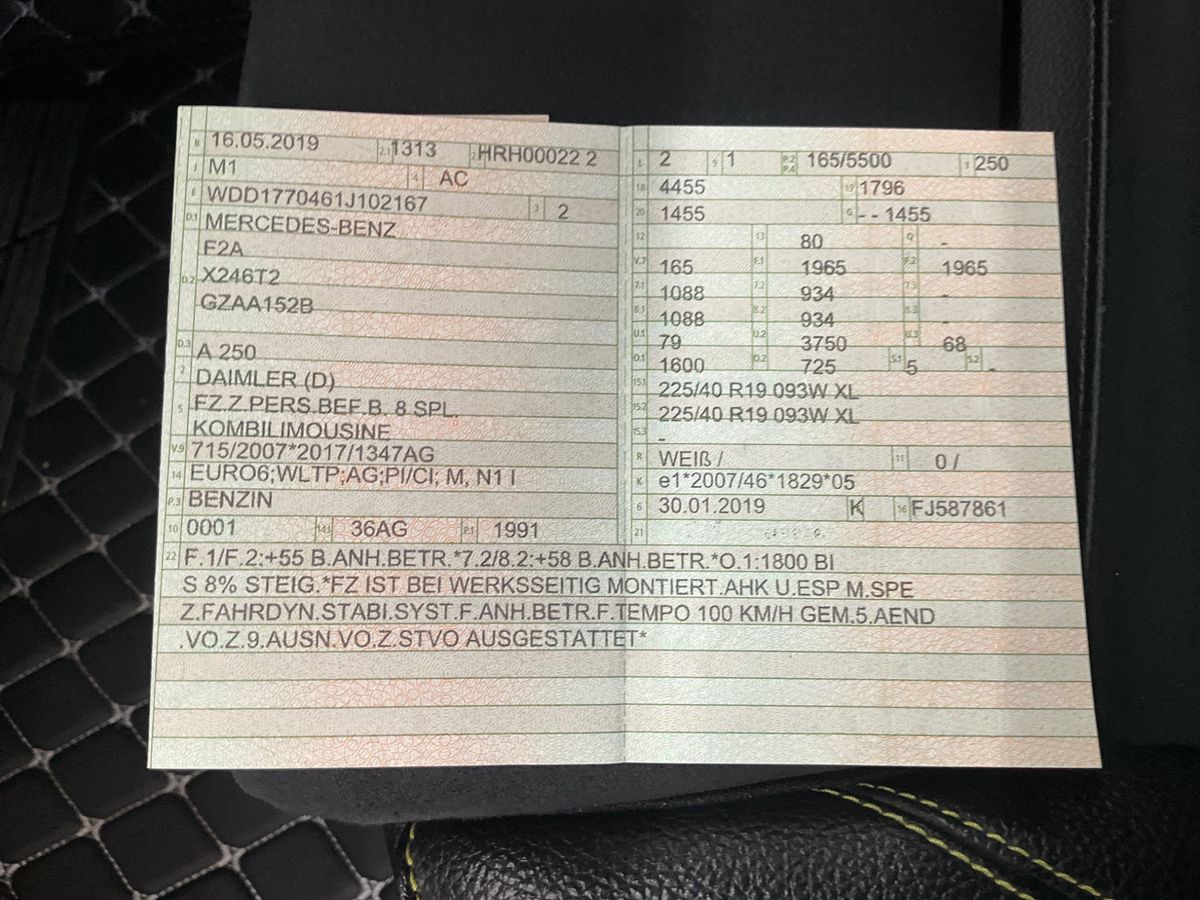 B 16.05.2019 2.1 1313 2.2 HRH00022 2
J M1 4 AC
E WDD1770461J102167 3 2
D.1 MERCEDES-BENZ
F2A
D.2 X246T2
GZAA152B
D.3 A 250
2 DAIMLER (D)
5 FZ.Z.PERS.BEF.B. 8 SPL.
KOMBILIMOUSINE
V.9 715/2007*2017/1347AG
14 EURO6;WLTP;AG;PI/CI; M, N1 I
P.3 BENZIN
10 0001 14.1 36AG P.1 1991
L 2 9 1 P.2 P.4 165/5500 T 250
18 4455 19 1796
20 1455 G - - 1455
12 13 80 Q -
V.7 165 F.1 1965 F.2 1965
7.1 1088 7.2 934 7.3 -
8.1 1088 8.2 934 8.3 -
U.1 79 U.2 3750 U.3 68
O.1 1600 O.2 725 S.1 5 S.2 -
15.1 225/40 R19 093W XL
15.2 225/40 R19 093W XL
15.3 -
R WEIß / 11 0 /
K e1*2007/46*1829*05
6 30.01.2019 K 16 FJ587861
21
22 F.1/F.2:+55 B.ANH.BETR.*7.2/8.2:+58 B.ANH.BETR.*O.1:1800 BI
S 8% STEIG.*FZ IST BEI WERKSSEITIG MONTIERT.AHK U.ESP M.SPE
Z.FAHRDYN.STABI.SYST.F.ANH.BETR.F.TEMPO 100 KM/H GEM.5.AEND
.VO.Z.9.AUSN.VO.Z.STVO AUSGESTATTET*